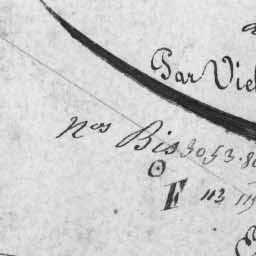 Par Viel
Nos Bis 3053.8
F 113 119